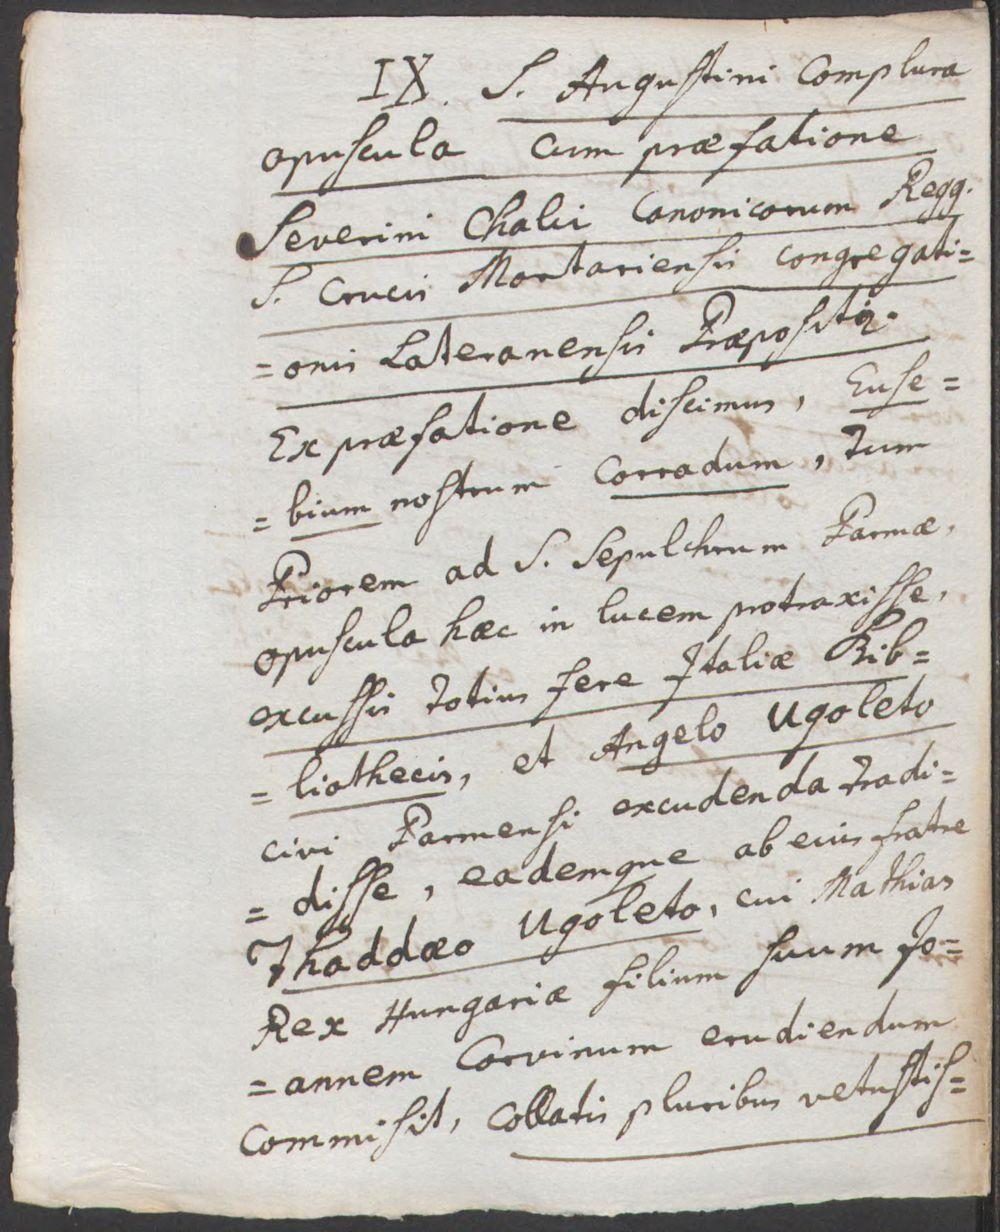 IX. S. Augustini Complura
opuscula cum præfatione
Severini Chalci Canonicorum Regg.
S. Crucis Mortariensis congregati=
=onis Lateranensis Præpositi.
Ex præfatione discimus, Euse=
=bium nostrum Corradum, tum
Priorem ad S. Sepulchrum Parmæ,
opuscula hæc in lucem protraxisse,
excussis totius fere Italiæ Bib=
=liothecis, et Angelo Ugoleto
civi Parmensi excudenda tradi=
=disse, eademque ab eius fratre
Thaddæo Ugoleto, cui Mathias
Rex Hungariæ filium suum Jo=
=annem Corvinum erudiendum
commisit, collatis pluribus vetustis=